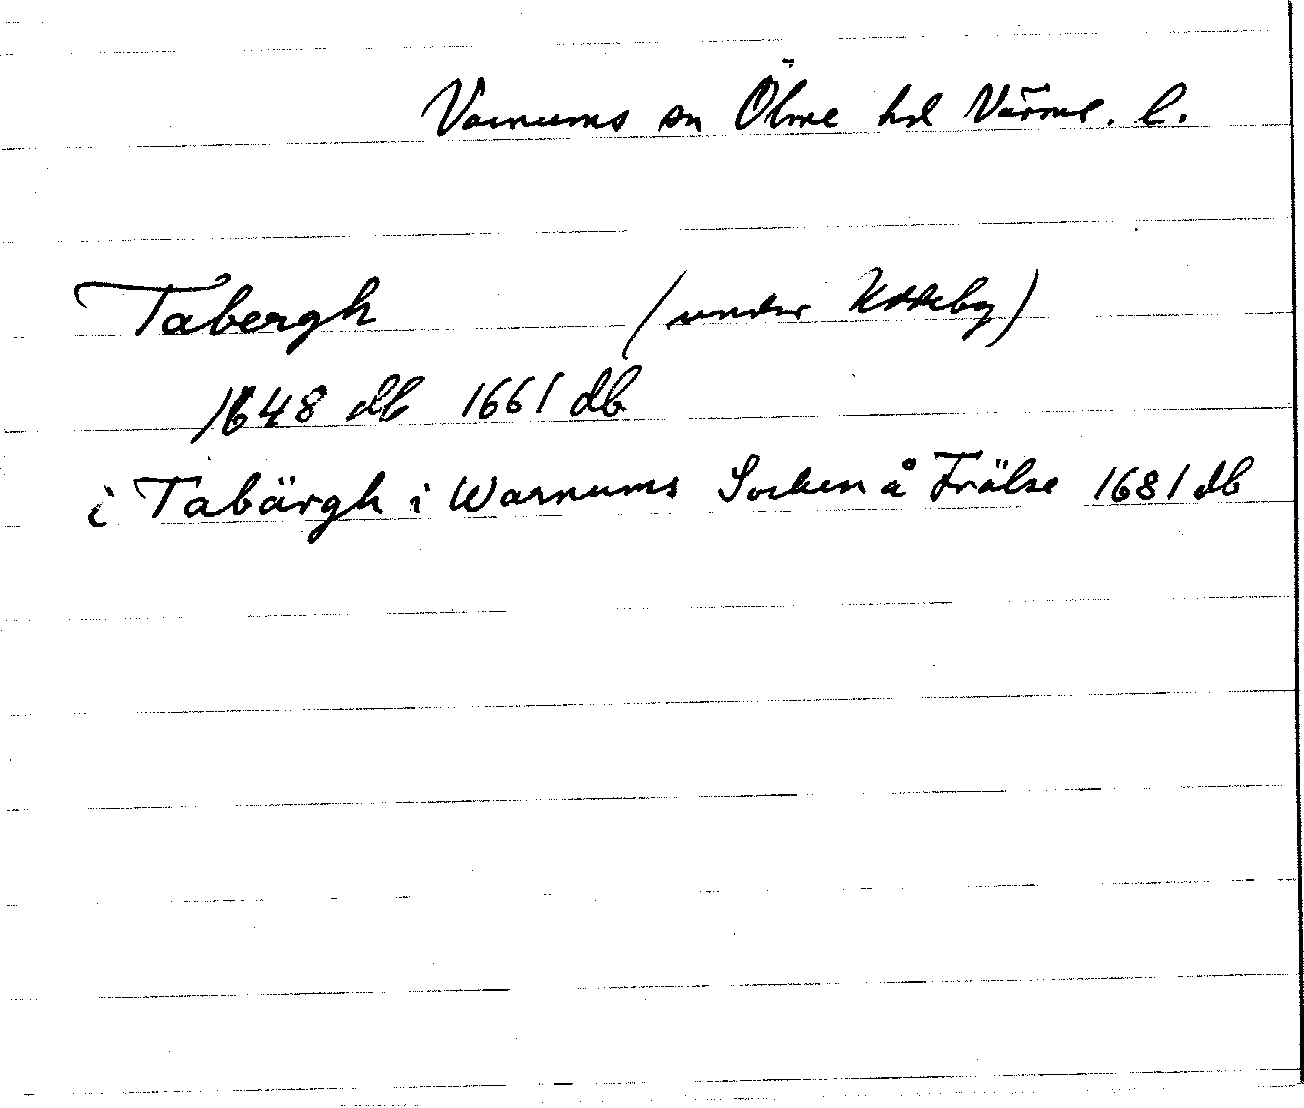 Varnums sn Ölme hd Värml. l.
Tabergh (under
1648 db 1661 db
i Tabärgh i Warnums Socken å Frälse 1681 db